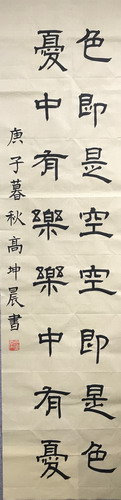 色即是空空即是色
憂中有樂樂中有憂
庚子暮秋高坤晨書